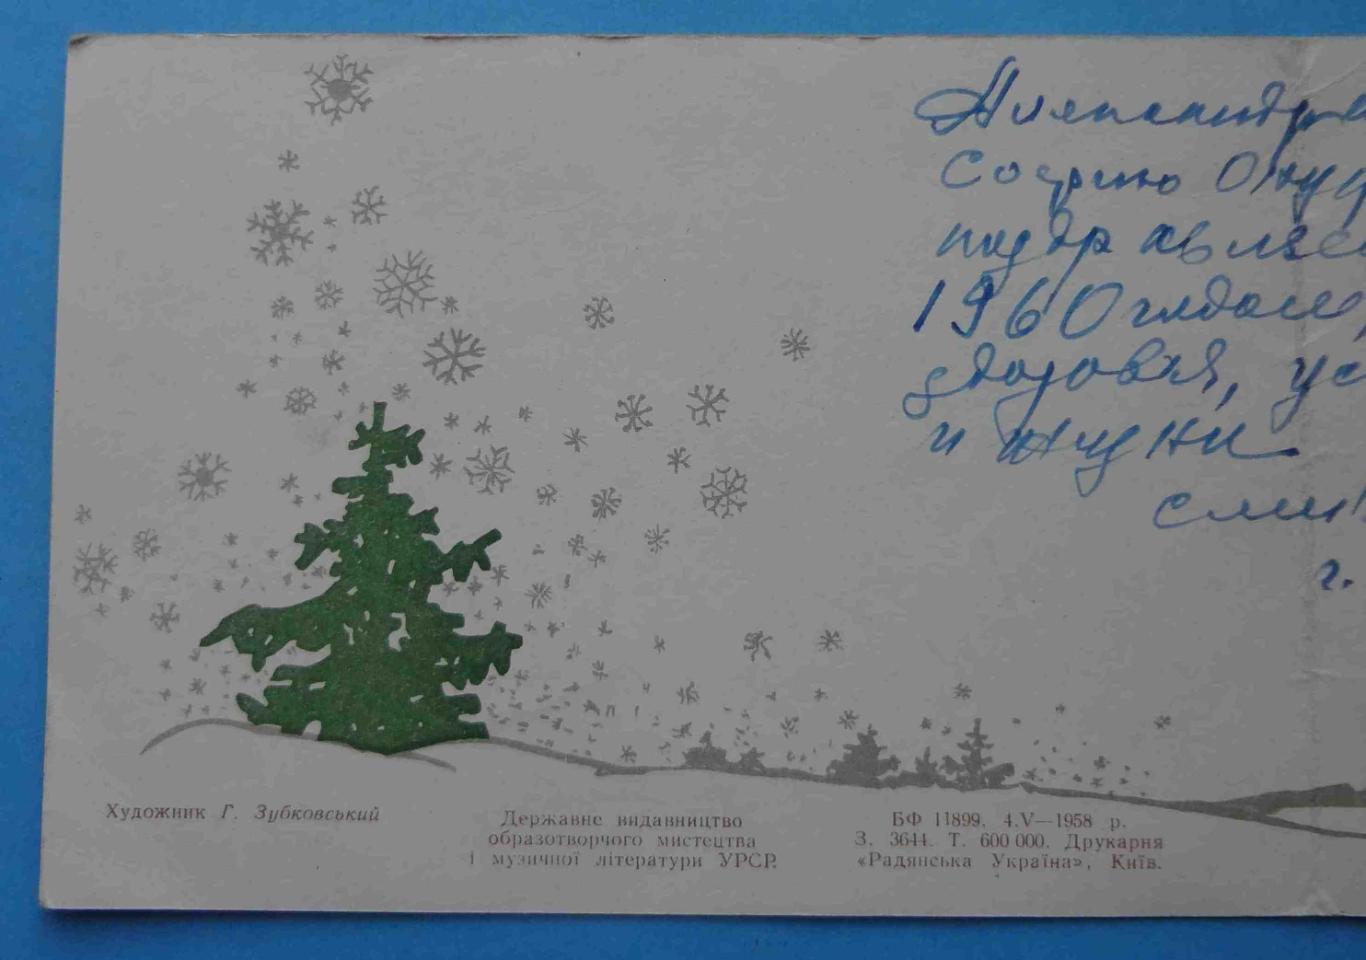 Александр
Софию
поздравляе
1960 годом,
здоровья, ус
и
г.
Художник Г. Зубковський
Державне видавництво
образотворчого мистецтва
і музичної літератури УРСР.
БФ 11899. 4.V—1958 р.
З. 3644. Т. 600 000. Друкарня
«Радянська Україна», Київ.